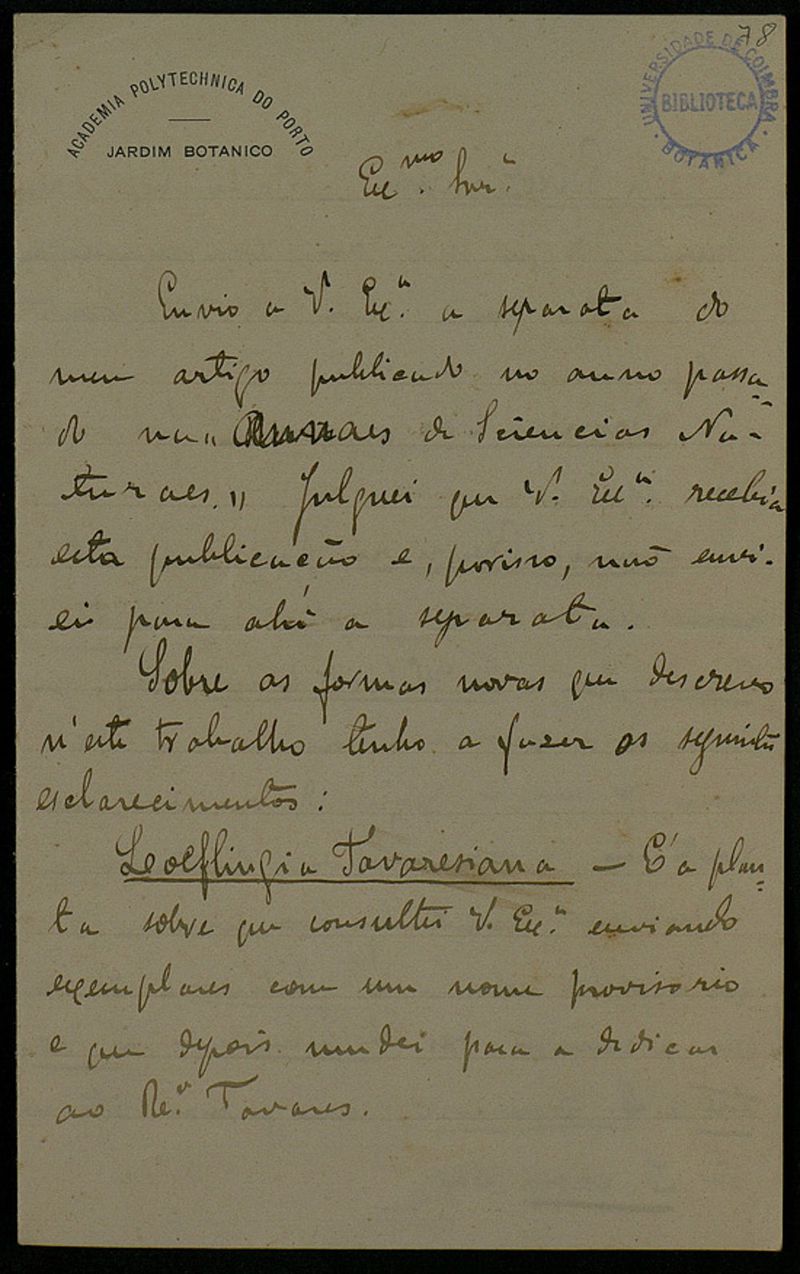 78
ACADEMIA POLYTECHNICA DO PORTO
JARDIM BOTANICO
UNIVERSIDADE DE COIMBRA
BIBLIOTECA
BOTANICA
Ex.mo Snr.
Envio a V. Ex.a a separata do
meu artigo publicado no anno passa-
do nos "Annaes de Sciencias Na-
turaes." Julguei que V. Ex.a recebia
esta publicação e, porisso, não envi-
ei para ahi a separata.
Sobre as formas novas que descrevo
n'este trabalho tenho a fazer os seguintes
esclarecimentos:
Loeflingia Tavaresiana — É a plan-
ta sobre que consultei V. Ex.a enviando
exemplares com um nome provisorio
e que depois mudei para a dedicar
ao Re.v Tavares.